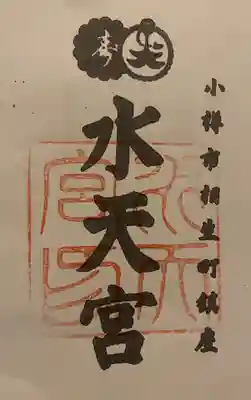 小樽市相生町鎮座
水天宮